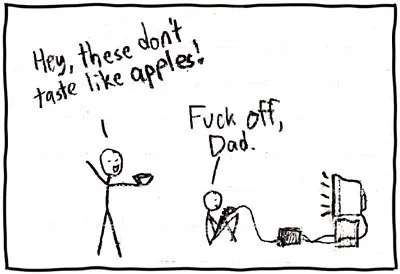 Hey, these don't
taste like apples!
Fuck off,
Dad.